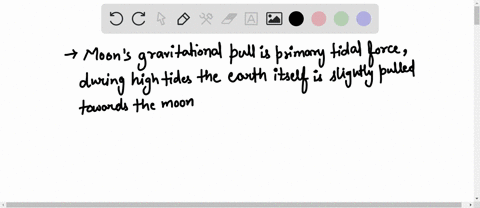 → Moon's gravitational pull is primary tidal force,
during high tides the earth itself is slightly pulled
towards the moon